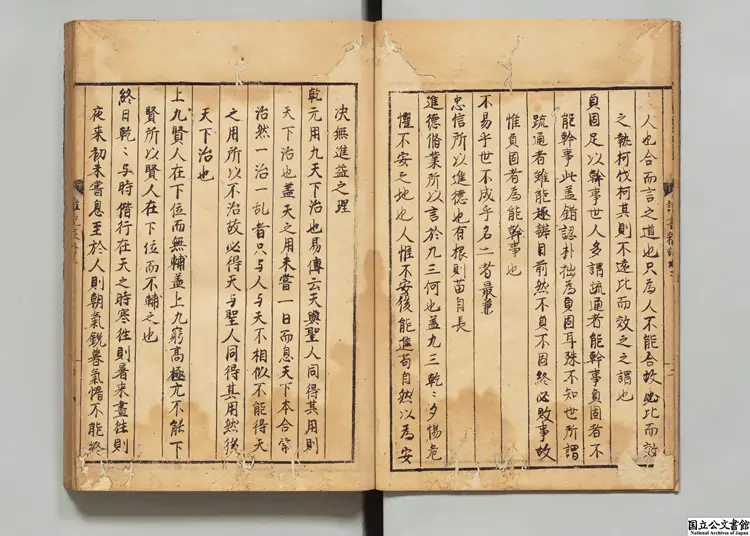 人也合而言之道也只為人不能合故必比而效
之執柯伐柯其則不遠比而效之之謂也
貞固足以幹事世人多謂疏通者能幹事貞固者不
能幹事此盖錯認朴拙為貞固耳殊不知世所謂
疏通者雖能趍辨目前然不貞不固終必敗事故
惟貞固者為能幹事也
不易乎世不成乎名二者最難
忠信所以進德也有根則苗自長
進德脩業所以言於九三何也盖九三乾〻夕惕危
懼不安之地也人惟不安後能進苟自然以為安
决無進益之理
乾元用九天下治也易傳云天與聖人同得其用則
天下治也盖天之用未嘗一日而息天下本合常
治然一治一乱者只与人与天不相似不能得天
之用所以不治故必得天与聖人同得其用然後
天下治也
上九賢人在下位而無輔盖上九窮髙極亢不能下
賢所以賢人在下位而不輔之也
終日乾〻与時偕行在天之時寒徃則暑来晝徃則
夜来初未嘗息至於人則朝氣鋭暮氣惰不能終
国立公文書館
National Archives of Japan